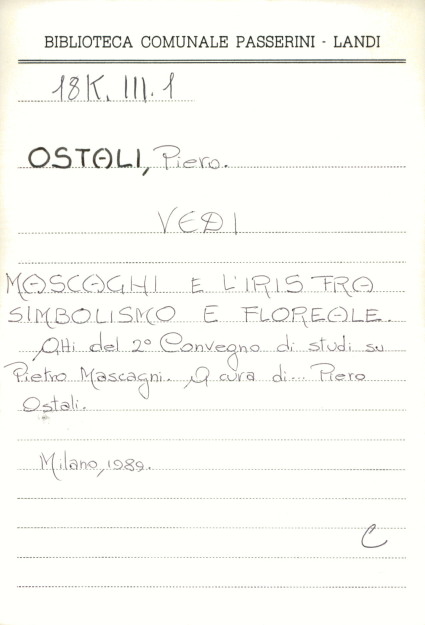 BIBLIOTECA COMUNALE PASSERINI - LANDI
18K. III. 1
OSTALI, Piero.
VEDI
MASCAGHI E L'IRIS FRA
SIMBOLISMO E FLOREALE.
Atti del 2° Convegno di studi su
Pietro Mascagni. A cura di... Piero
Ostali.
Milano, 1989.
C